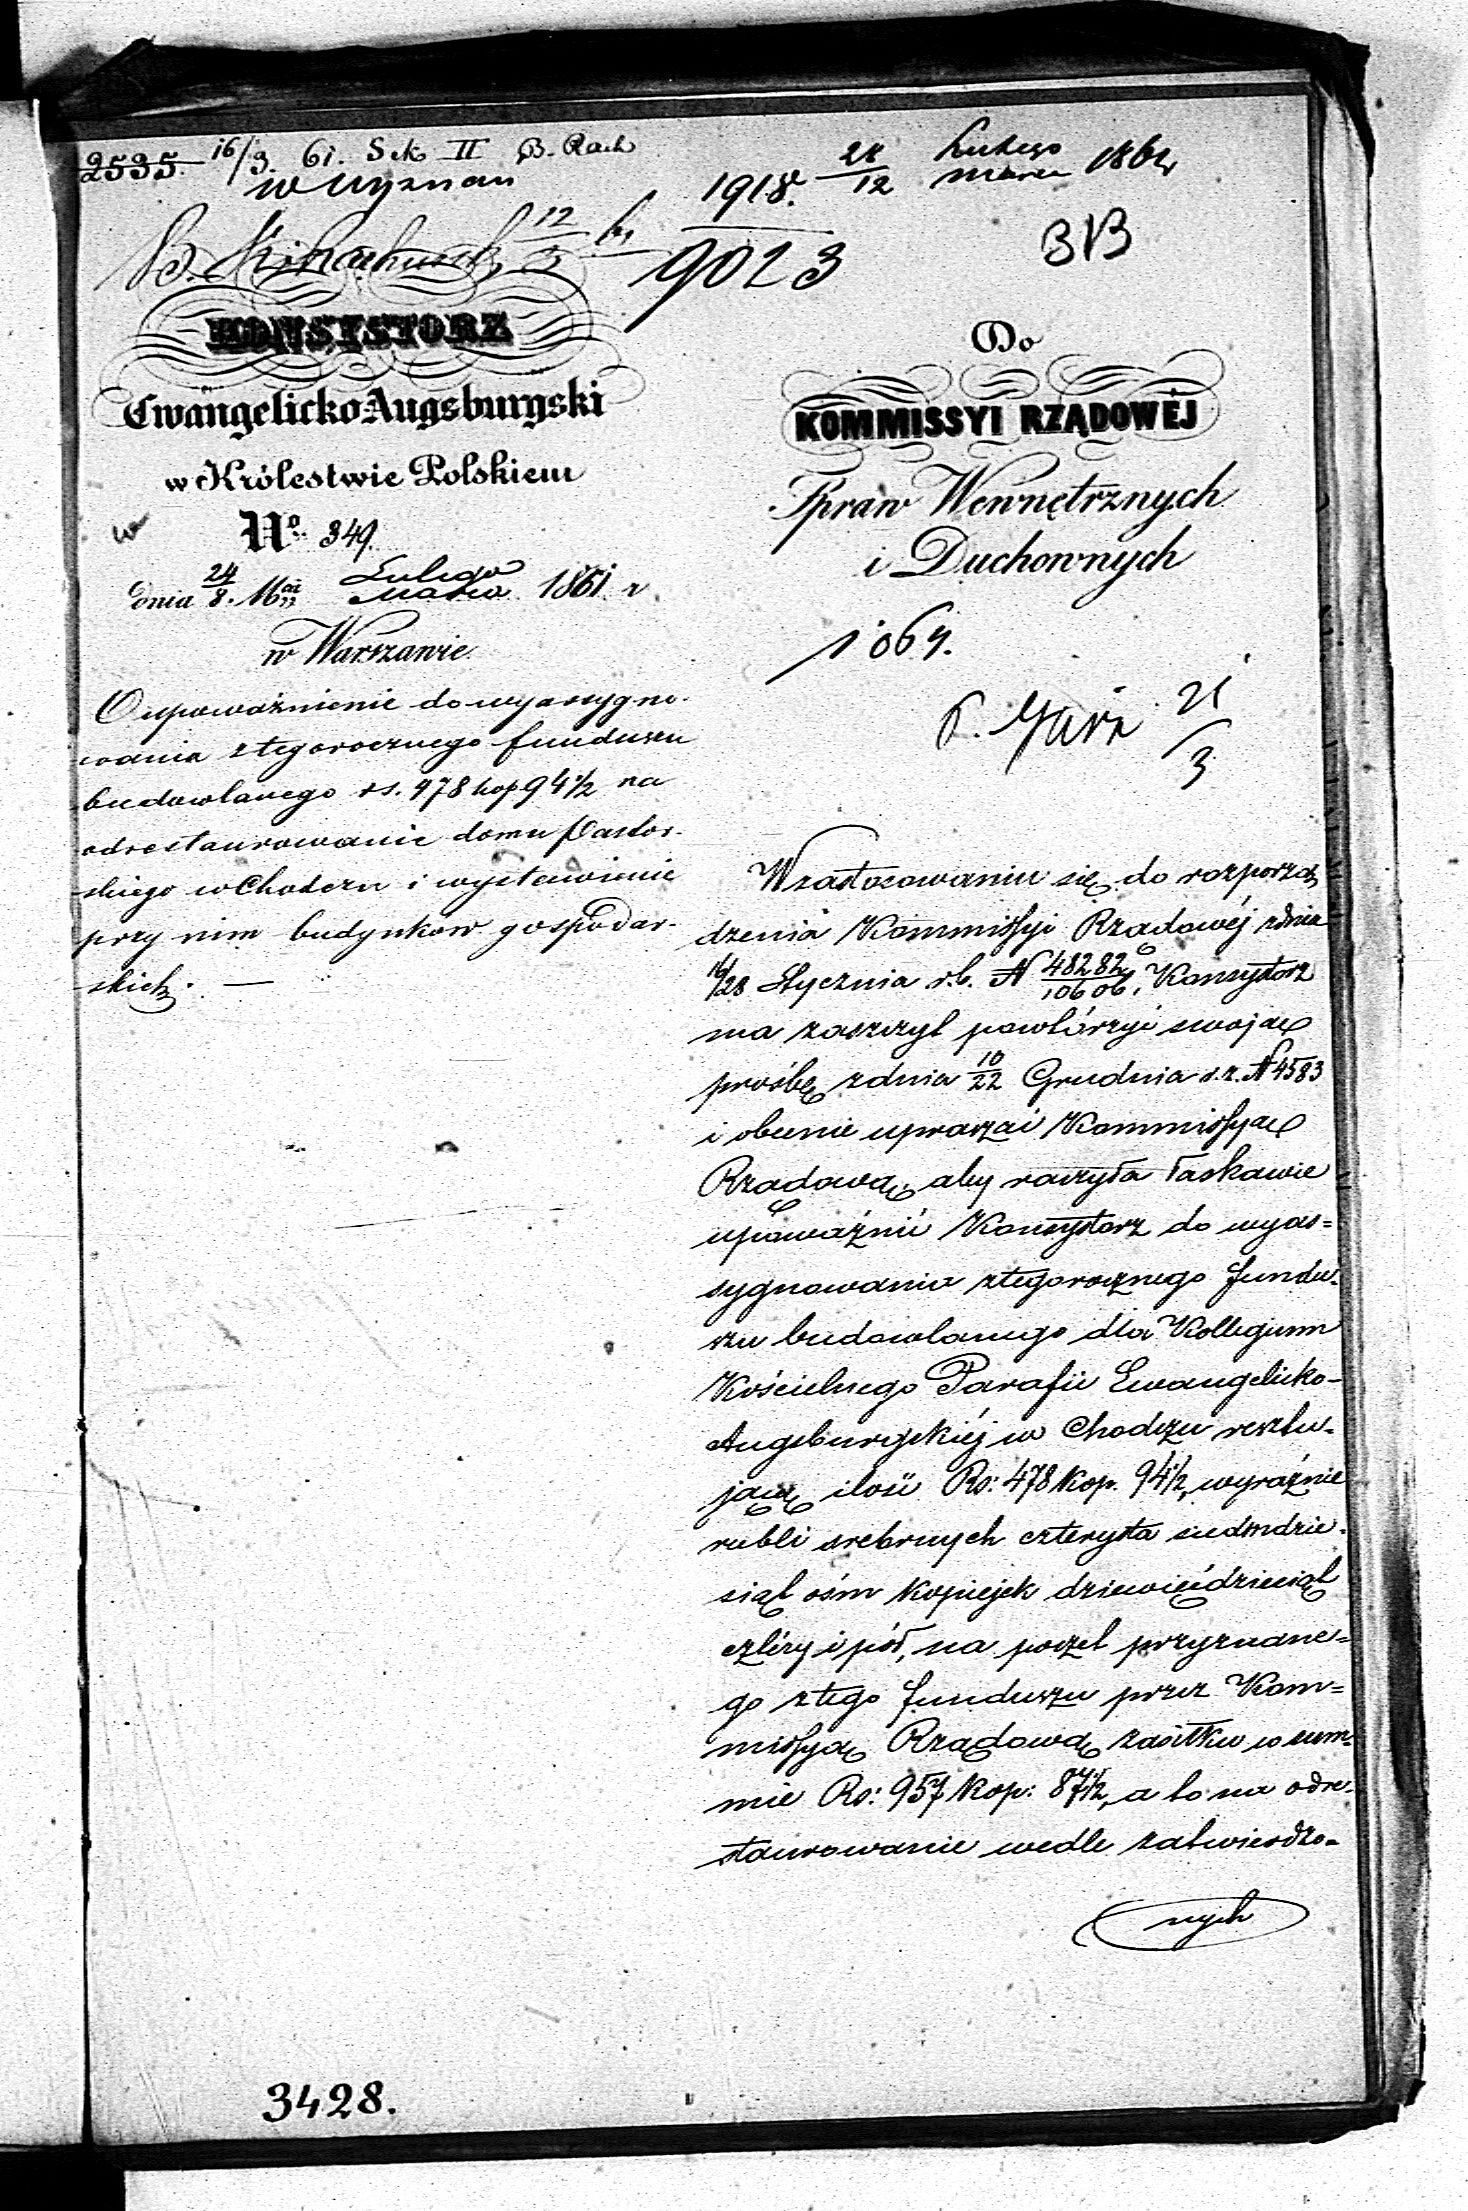 2535. 16/3. 61. Sek II B. Rach
w wyznan
1918. 28/12 Lutego Marca 1861
12/3 61
9023
KONSYSTORZ
Ewangelicko-Augsburgski
w Królestwie Polskiem
No. 349.
dnia 24/8. Mca Lutego Marca 1861 r.
w Warszawie.
O upoważnienie do wyassygno-
wania z tegorocznego funduszu
budowlanego rs. 478 kop 94½ na
odrestaurowanie domu Pastor-
skiego w Chodczu i wystawienie
przy nim budynków gospodar-
skich. —
3428.
Do
KOMMISSYI RZĄDOWÉJ
Spraw Wewnętrznych
i Duchownych
21/3
W zastosowaniu się do rozporzą
dzenia Kommissyi Rządowéj z dnia
16/28 Stycznia r.b. N 48282/10606, Konsystorz
ma zaszczyt powtórzyć swoją
prośbę z dnia 10/22 Grudnia r.z. N 4583
i obecnie upraszać Kommissyą
Rządową, aby raczyła łaskawie
upoważnić Konsystorz do wyas=
sygnowania z tegorocznego fundu-
szu budowlanego dla Kollegium
Kościelnego Parafii Ewangelicko-
Augsburgskiéj w Chodczu resztu-
jącą ilość Rs: 478 Kop. 94½, wyraźnie
rubli srebrnych czterysta siedmdzie-
siąt ośm Kopiejek dziewięćdziesiąt
cztéry i pół, na poczet przyznane=
go z tego funduszu przez Kom=
missyą Rządową zasiłku w sum-
mie Rs: 957 Kop: 87½, a to na odre-
staurowanie wedle zatwierdzo-
nych